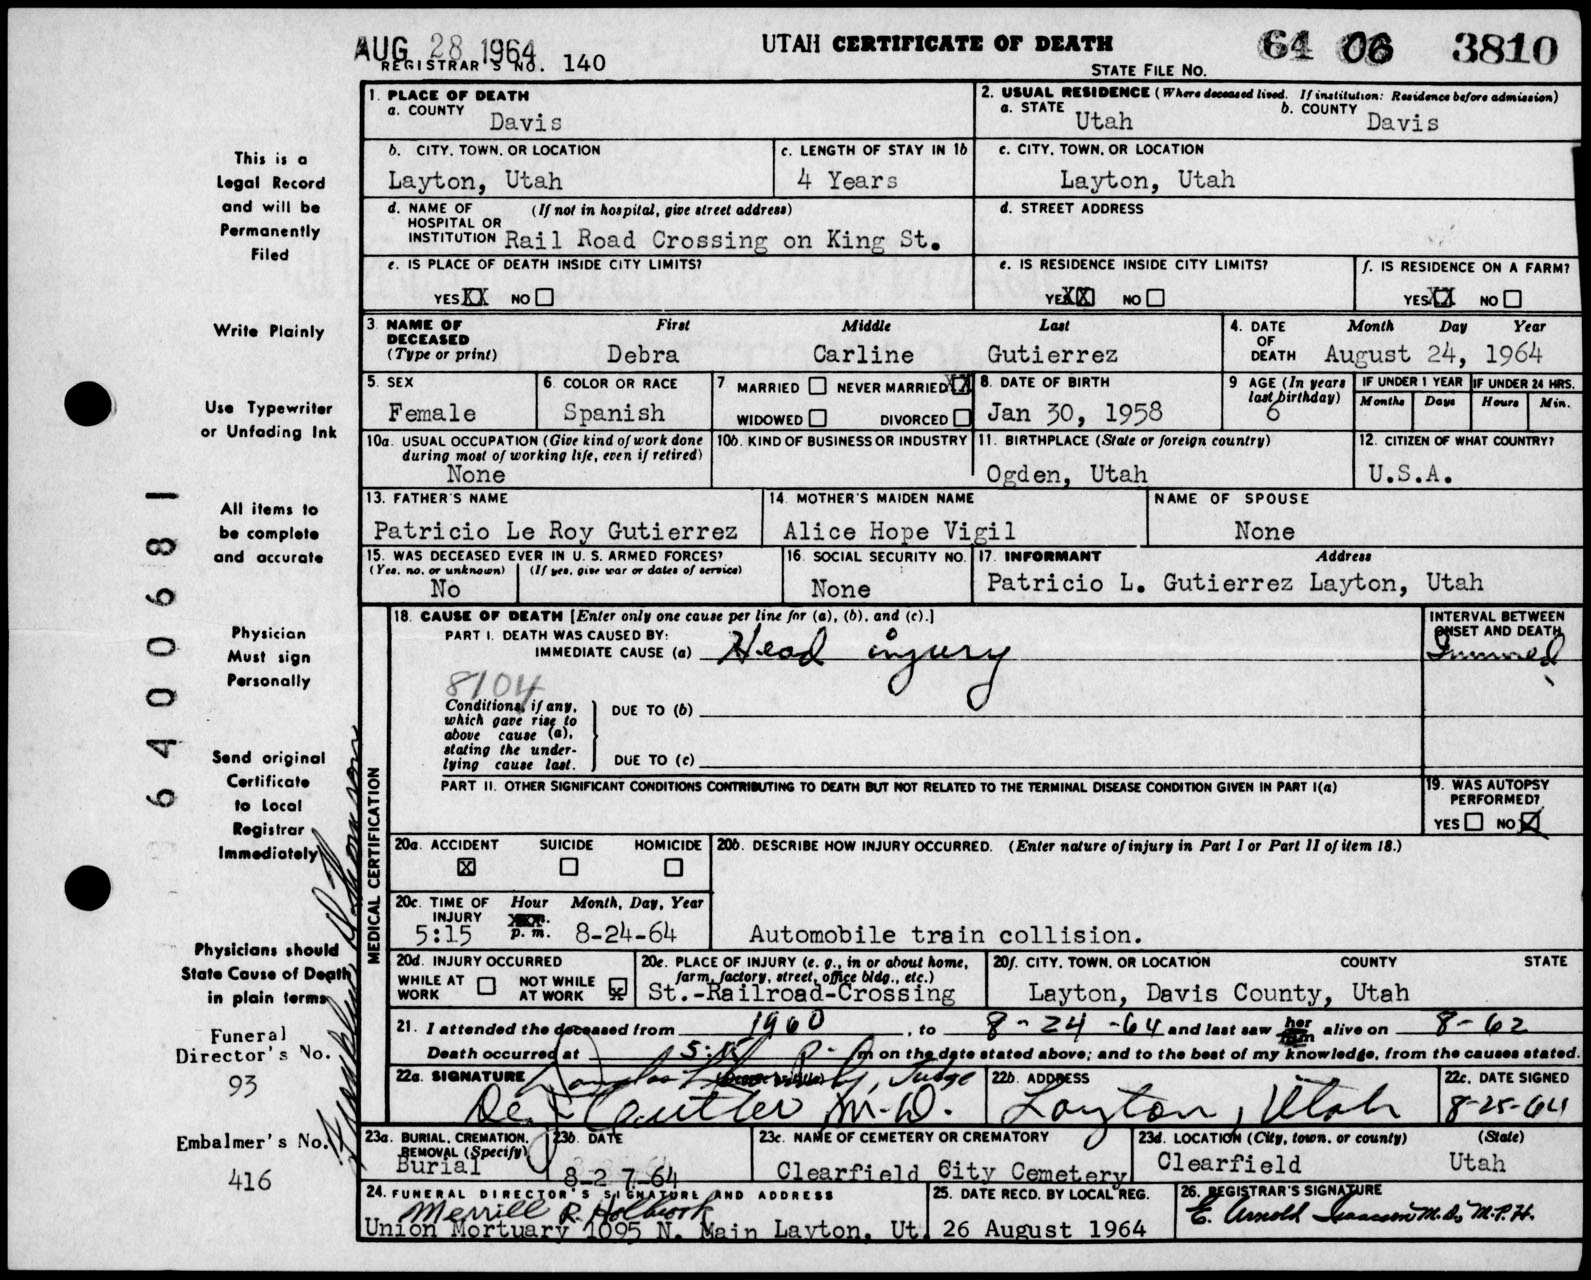 AUG 28 1964
REGISTRAR'S NO. 140
UTAH CERTIFICATE OF DEATH
STATE FILE NO.
64 06 3810
This is a
Legal Record
and will be
Permanently
Filed
Write Plainly
Use Typewriter
or Unfading Ink
All items to
be complete
and accurate
Physician
Must sign
Personally
Send original
Certificate
to Local
Registrar
Immediately
Physicians should
State Cause of Death
in plain terms
Funeral
Director's No.
93
Embalmer's No.
416
6400681
1. PLACE OF DEATH
a. COUNTY
Davis
2. USUAL RESIDENCE (Where deceased lived. If institution: Residence before admission)
a. STATE Utah
b. COUNTY Davis
b. CITY, TOWN, OR LOCATION
Layton, Utah
c. LENGTH OF STAY IN 1b
4 Years
c. CITY, TOWN, OR LOCATION
Layton, Utah
d. NAME OF HOSPITAL OR INSTITUTION (If not in hospital, give street address)
Rail Road Crossing on King St.
d. STREET ADDRESS
e. IS PLACE OF DEATH INSIDE CITY LIMITS?
YES XX NO
e. IS RESIDENCE INSIDE CITY LIMITS?
YES XX NO
f. IS RESIDENCE ON A FARM?
YES XX NO
3. NAME OF DECEASED (Type or print)
First Middle Last
Debra Carline Gutierrez
4. DATE OF DEATH
Month Day Year
August 24, 1964
5. SEX
Female
6. COLOR OR RACE
Spanish
7 MARRIED NEVER MARRIED XX
WIDOWED DIVORCED
8. DATE OF BIRTH
Jan 30, 1958
9 AGE (In years last birthday)
6
IF UNDER 1 YEAR IF UNDER 24 HRS.
Months Days Hours Min.
10a. USUAL OCCUPATION (Give kind of work done during most of working life, even if retired)
None
10b. KIND OF BUSINESS OR INDUSTRY
11. BIRTHPLACE (State or foreign country)
Ogden, Utah
12. CITIZEN OF WHAT COUNTRY?
U.S.A.
13. FATHER'S NAME
Patricio Le Roy Gutierrez
14. MOTHER'S MAIDEN NAME
Alice Hope Vigil
NAME OF SPOUSE
None
15. WAS DECEASED EVER IN U. S. ARMED FORCES?
(Yes, no, or unknown) (If yes, give war or dates of service)
No
16. SOCIAL SECURITY NO.
None
17. INFORMANT Address
Patricio L. Gutierrez Layton, Utah
MEDICAL CERTIFICATION
18. CAUSE OF DEATH [Enter only one cause per line for (a), (b), and (c).]
PART I. DEATH WAS CAUSED BY:
IMMEDIATE CAUSE (a) Head injury
INTERVAL BETWEEN ONSET AND DEATH
8104
Conditions, if any, which gave rise to above cause (a), stating the underlying cause last.
DUE TO (b)
DUE TO (c)
PART II. OTHER SIGNIFICANT CONDITIONS CONTRIBUTING TO DEATH BUT NOT RELATED TO THE TERMINAL DISEASE CONDITION GIVEN IN PART I(a)
19. WAS AUTOPSY PERFORMED?
YES NO X
20a. ACCIDENT SUICIDE HOMICIDE
X
20b. DESCRIBE HOW INJURY OCCURRED. (Enter nature of injury in Part I or Part II of item 18.)
Automobile train collision.
20c. TIME OF INJURY Hour Month, Day, Year
5:15 p. m. 8-24-64
20d. INJURY OCCURRED
WHILE AT WORK NOT WHILE AT WORK X
20e. PLACE OF INJURY (e. g., in or about home, farm, factory, street, office bldg., etc.)
St.-Railroad-Crossing
20f. CITY, TOWN, OR LOCATION COUNTY STATE
Layton, Davis County, Utah
21. I attended the deceased from 1960, to 8-24-64 and last saw her him alive on 8-62
Death occurred at 5:15 P. m on the date stated above; and to the best of my knowledge, from the causes stated.
22a. SIGNATURE
Judge
M.D.
22b. ADDRESS
Layton, Utah
22c. DATE SIGNED
8-25-64
23a. BURIAL, CREMATION, REMOVAL (Specify)
Burial
23b. DATE
8-27-64
23c. NAME OF CEMETERY OR CREMATORY
Clearfield City Cemetery
23d. LOCATION (City, town, or county) (State)
Clearfield Utah
24. FUNERAL DIRECTOR'S SIGNATURE AND ADDRESS
Merrill R. Holbrook
Union Mortuary 1095 N. Main Layton, Ut.
25. DATE RECD. BY LOCAL REG.
26 August 1964
26. REGISTRAR'S SIGNATURE
E. Arnold Isaacson M.D., M.P.H.